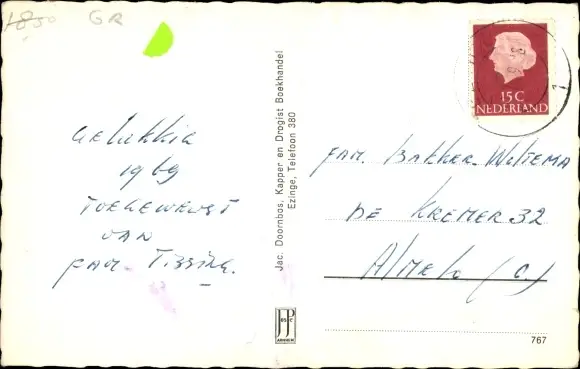 1850 GR
15 C
NEDERLAND
Gelukkig
1969
TOEGEWENST
VAN
FAM. TISSING.
Jac. Doornbos, Kapper en Drogist Boekhandel
Ezinge, Telefoon 380
FAM. BAKKER-WILTEMA
DE KREMER 32
Almelo (O.)
JP
ARNHEM
767